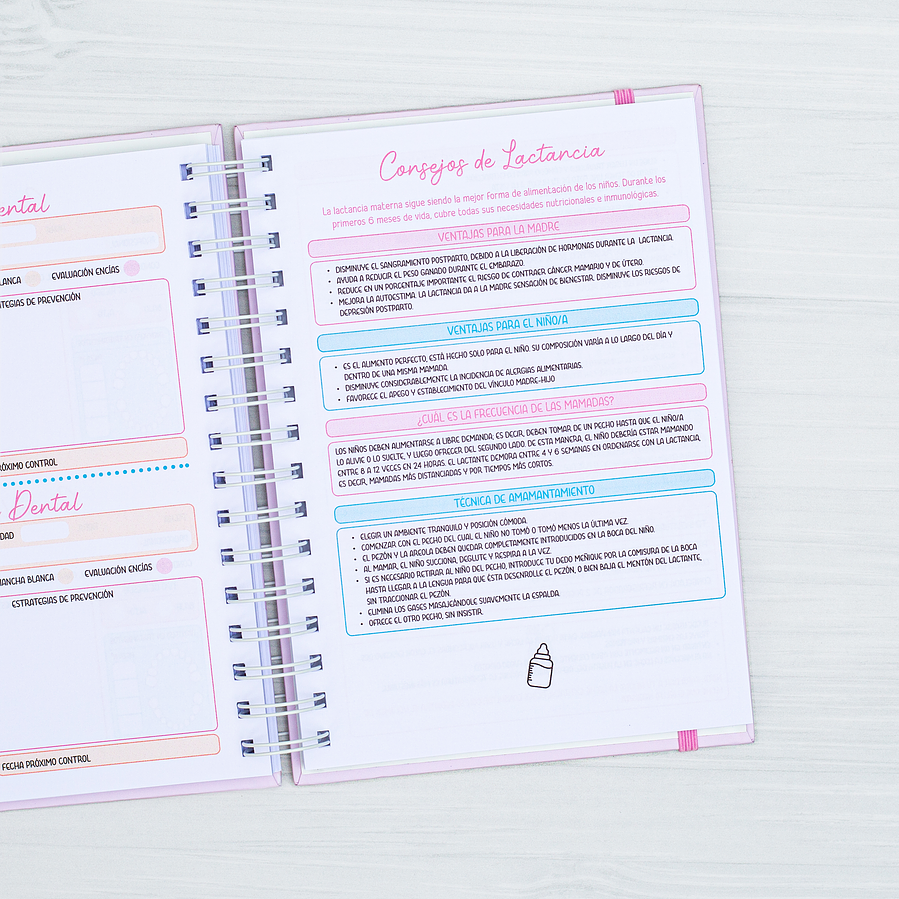 ental
LANCA
EVALUACIÓN ENCÍAS
ATEGIAS DE PREVENCIÓN
RÓXIMO CONTROL
Dental
DAD
MANCHA BLANCA
EVALUACIÓN ENCÍAS
ESTRATEGIAS DE PREVENCIÓN
FECHA PRÓXIMO CONTROL
Consejos de Lactancia
La lactancia materna sigue siendo la mejor forma de alimentación de los niños. Durante los
primeros 6 meses de vida, cubre todas sus necesidades nutricionales e inmunológicas.
VENTAJAS PARA LA MADRE
• DISMINUYE EL SANGRAMIENTO POSTPARTO, DEBIDO A LA LIBERACIÓN DE HORMONAS DURANTE LA LACTANCIA.
• AYUDA A REDUCIR EL PESO GANADO DURANTE EL EMBARAZO.
• REDUCE EN UN PORCENTAJE IMPORTANTE EL RIESGO DE CONTRAER CÁNCER MAMARIO Y DE ÚTERO.
• MEJORA LA AUTOESTIMA. LA LACTANCIA DA A LA MADRE SENSACIÓN DE BIENESTAR. DISMINUYE LOS RIESGOS DE
DEPRESIÓN POSTPARTO.
VENTAJAS PARA EL NIÑO/A
• ES EL ALIMENTO PERFECTO, ESTÁ HECHO SOLO PARA EL NIÑO. SU COMPOSICIÓN VARÍA A LO LARGO DEL DÍA Y
DENTRO DE UNA MISMA MAMADA.
• DISMINUYE CONSIDERABLEMENTE LA INCIDENCIA DE ALERGIAS ALIMENTARIAS.
• FAVORECE EL APEGO Y ESTABLECIMIENTO DEL VÍNCULO MADRE-HIJO
¿CUÁL ES LA FRECUENCIA DE LAS MAMADAS?
LOS NIÑOS DEBEN ALIMENTARSE A LIBRE DEMANDA; ES DECIR, DEBEN TOMAR DE UN PECHO HASTA QUE EL NIÑO/A
LO ALIVIE O LO SUELTE, Y LUEGO OFRECER DEL SEGUNDO LADO. DE ESTA MANERA, EL NIÑO DEBERÍA ESTAR MAMANDO
ENTRE 8 A 12 VECES EN 24 HORAS. EL LACTANTE DEMORA ENTRE 4 Y 6 SEMANAS EN ORDENARSE CON LA LACTANCIA,
ES DECIR, MAMADAS MÁS DISTANCIADAS Y POR TIEMPOS MÁS CORTOS.
TÉCNICA DE AMAMANTAMIENTO
• ELEGIR UN AMBIENTE TRANQUILO Y POSICIÓN CÓMODA.
• COMENZAR CON EL PECHO DEL CUAL EL NIÑO NO TOMÓ O TOMÓ MENOS LA ÚLTIMA VEZ.
• EL PEZÓN Y LA AREOLA DEBEN QUEDAR COMPLETAMENTE INTRODUCIDOS EN LA BOCA DEL NIÑO.
• AL MAMAR, EL NIÑO SUCCIONA, DEGLUTE Y RESPIRA A LA VEZ.
• SI ES NECESARIO RETIRAR AL NIÑO DEL PECHO, INTRODUCE TU DEDO MEÑIQUE POR LA COMISURA DE LA BOCA
HASTA LLEGAR A LA LENGUA PARA QUE ESTA DESENROLLE EL PEZÓN, O BIEN BAJA EL MENTÓN DEL LACTANTE,
SIN TRACCIONAR EL PEZÓN.
• ELIMINA LOS GASES MASAJEÁNDOLE SUAVEMENTE LA ESPALDA.
• OFRECE EL OTRO PECHO, SIN INSISTIR.